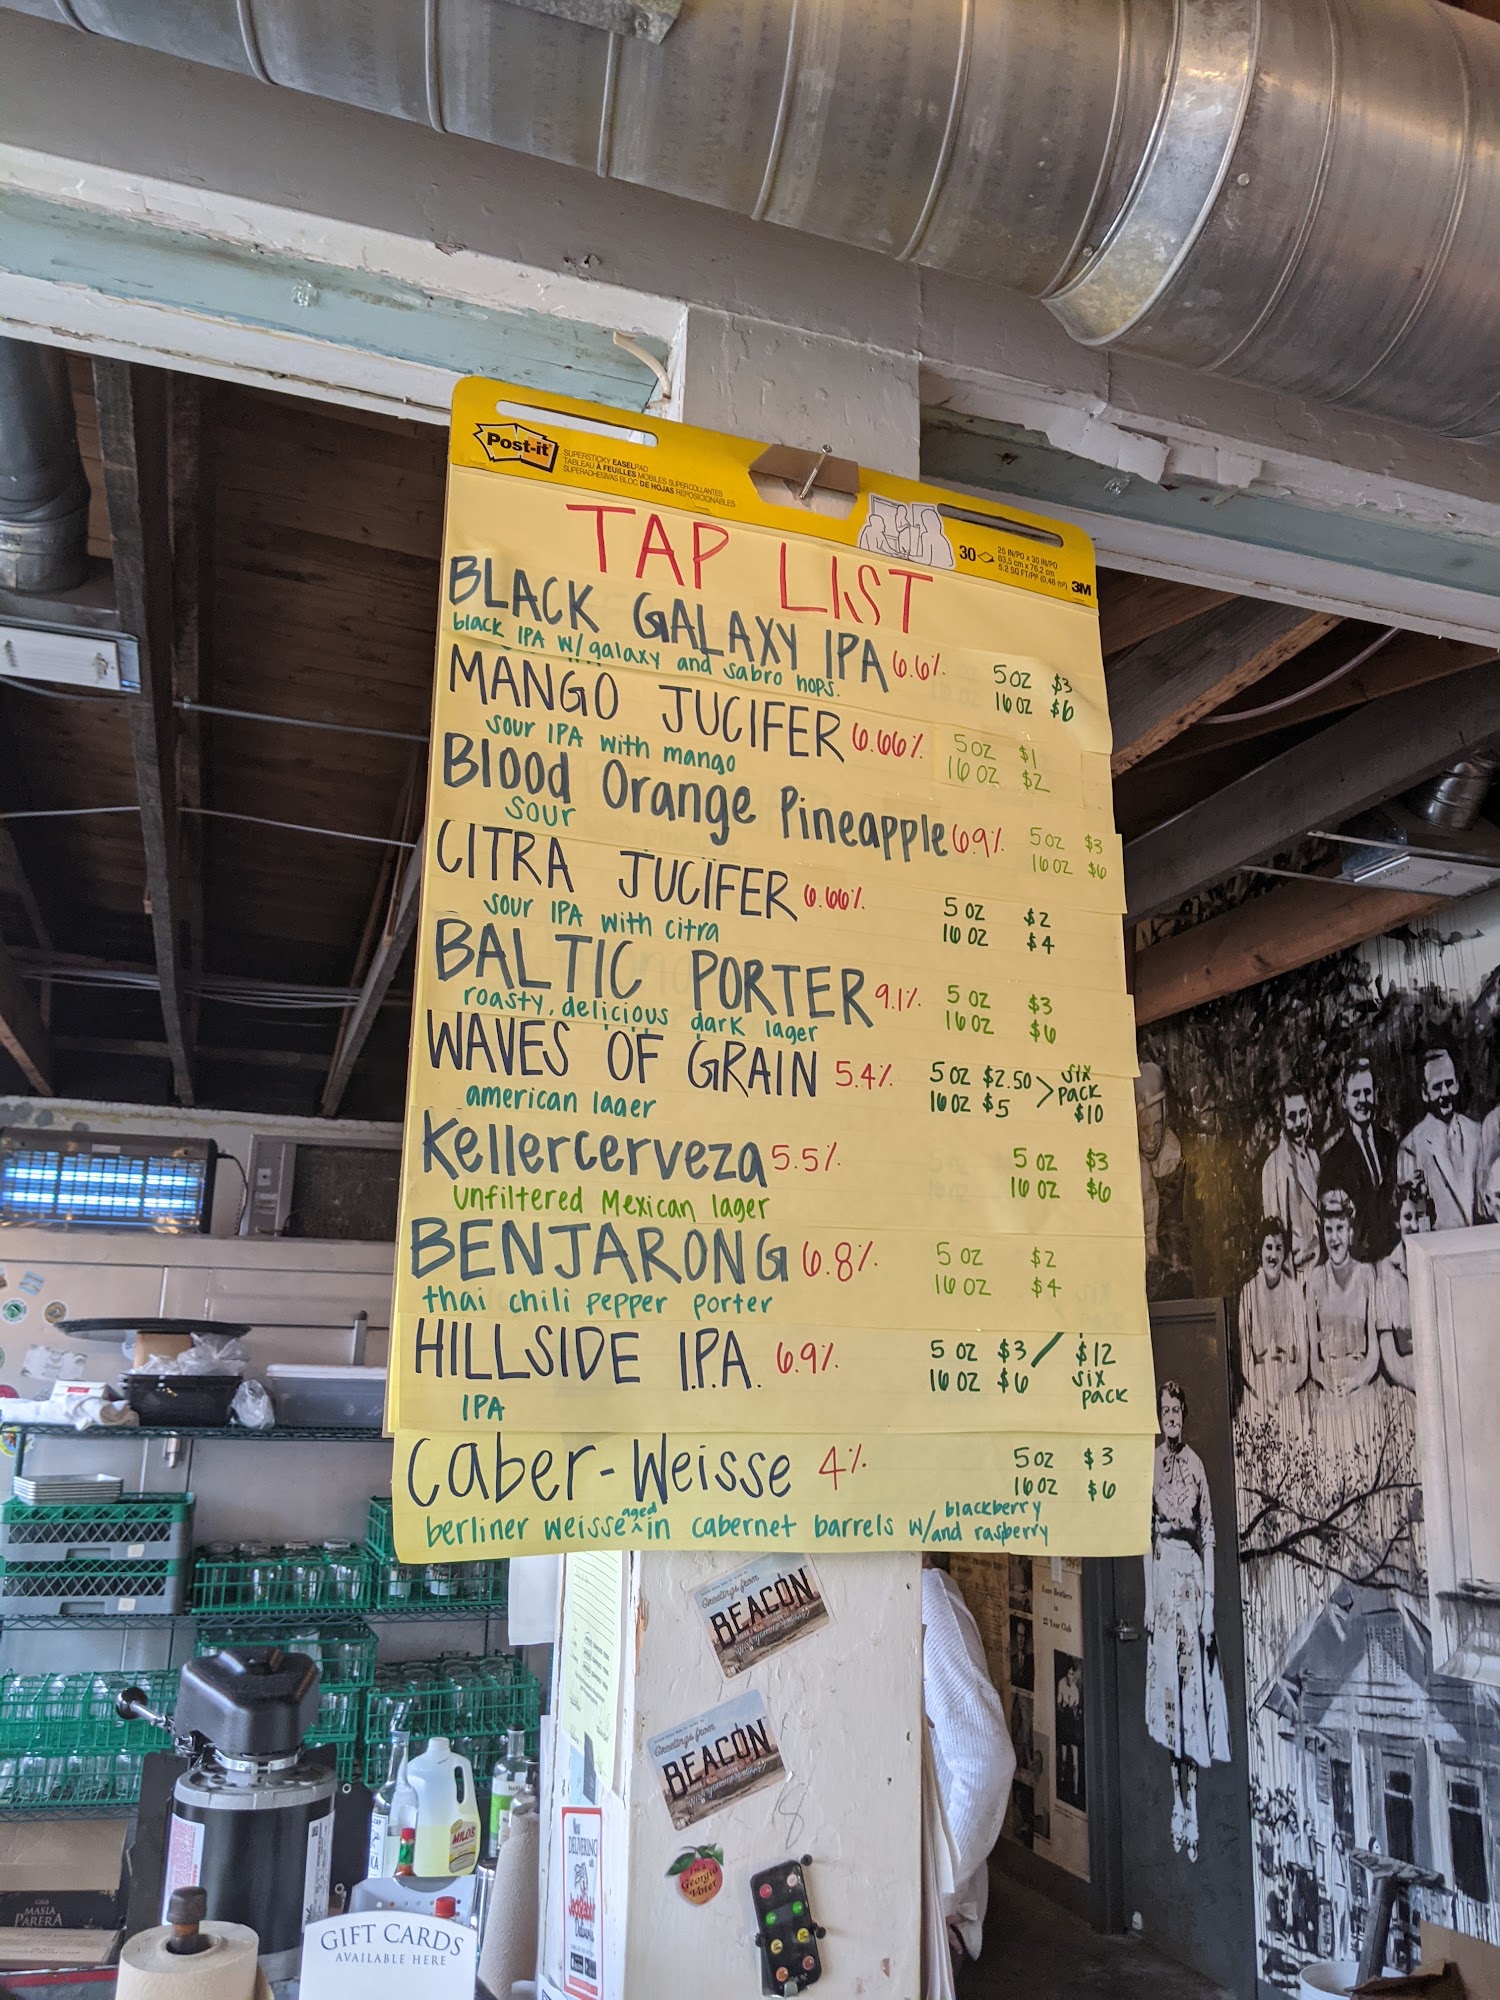 Post-it
SUPERSTICKY EASEL PAD
TABLEAU À FEUILLES MOBILES SUPERCOLLANTES
SUPERADHESIVAS BLOC DE HOJAS REPOSICIONABLES
30
25 IN/PO x 30 IN/PO
63,5 cm x 76,2 cm
5.2 SQ FT/PI² (0,48 m²)
3M
TAP LIST
BLACK GALAXY IPA 6.6% 5 OZ $3
black IPA w/ galaxy and sabro hops. 16 OZ $6
MANGO JUCIFER 6.66% 5 OZ $1
sour IPA with mango 16 OZ $2
Blood Orange Pineapple 6.9% 5 OZ $3
sour 16 OZ $6
CITRA JUCIFER 6.66% 5 OZ $2
sour IPA with citra 16 OZ $4
BALTIC PORTER 9.1% 5 OZ $3
roasty, delicious dark lager 16 OZ $6
WAVES OF GRAIN 5.4% 5 OZ $2.50 > six
american lager 16 OZ $5 pack
$10
Kellercerveza 5.5% 5 OZ $3
unfiltered Mexican lager 16 OZ $6
BENJARONG 6.8% 5 OZ $2
thai chili pepper porter 16 OZ $4
HILLSIDE I.P.A. 6.9% 5 OZ $3 / $12
16 OZ $6 six
IPA pack
Caber-Weisse 4% 5 OZ $3
16 OZ $6
berliner weisse ^aged in cabernet barrels w/ blackberry
and raspberry
Greetings from
BEACON
Greetings from
BEACON
8
I'm a
Georgia
Voter
DELIVERING
MILO'S
MASIA
PARERA
GIFT CARDS
AVAILABLE HERE